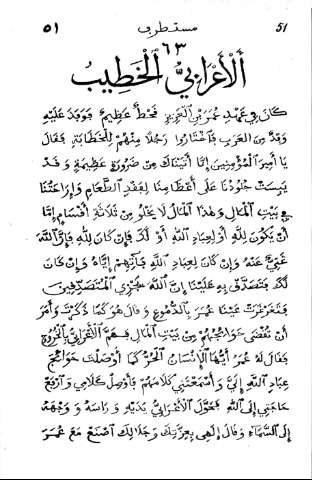 ٥١ مستطرف 51
٦٣
أَلْأَعْرَابِيُّ الْخَطِيبُ
كَانَ فِي عَهْدِ عُمَرَ بْنِ الْعَزِيزِ قَحْطٌ عَظِيمٌ فَوَفَدَ عَلَيْهِ
وَفْدٌ مِنَ الْعَرَبِ فَاخْتَارُوا رَجُلًا مِنْهُمْ لِلْخَطَابَةِ فَقَالَ
يَا أَمِيرَ الْمُؤْمِنِينَ إِنَّا أَتَيْنَاكَ مِنْ ضَرُورَةٍ عَظِيمَةٍ وَقَدْ
يَبِسَتْ جُلُودُنَا عَلَى أَعْظَامِنَا لِفَقْدِ الطَّعَامِ وَرَاحَتُنَا
فِي بَيْتِ الْمَالِ وَهٰذَا الْمَالُ لَا يَخْلُو مِنْ ثَلَاثَةِ أَقْسَامٍ إِمَّا
أَنْ يَكُونَ لِلّٰهِ أَوْ لِعِبَادِ اللّٰهِ أَوْ لَكَ فَإِنْ كَانَ لِلّٰهِ فَإِنَّ اللّٰهَ
غَنِيٌّ عَنْهُ وَإِنْ كَانَ لِعِبَادِ اللّٰهِ فَآتِهِمْ إِيَّاهُ وَإِنْ كَانَ
لَكَ فَتَصَدَّقْ بِهِ عَلَيْنَا إِنَّ اللّٰهَ يَجْزِي الْمُتَصَدِّقِينَ
فَتَغَرْغَرَتْ عَيْنَا عُمَرَ بِالدُّمُوعِ وَقَالَ هُوَ كَمَا ذَكَرْتَ وَأَمَرَ
أَنْ تُقْضَى حَوَائِجُهُمْ مِنْ بَيْتِ الْمَالِ فَهَمَّ الْأَعْرَابِيُّ بِالْخُرُوجِ
فَقَالَ لَهُ عُمَرُ أَيُّهَا الْإِنْسَانُ الْحُرُّ كَمَا أَوْصَلْتَ حَوَائِجَ
عِبَادِ اللّٰهِ إِلَيَّ وَأَسْمَعْتَنِي كَلَامَهُمْ فَأَوْصِلْ كَلَامِي وَارْفَعْ
حَاجَتِي إِلَى اللّٰهِ فَحَوَّلَ الْأَعْرَابِيُّ يَدَيْهِ وَرَاسَهُ وَوَجْهَهُ
إِلَى السَّمَاءِ وَقَالَ إِلٰهِي بِعِزَّتِكَ وَجَلَالِكَ اصْنَعْ مَعَ عُمَرَ